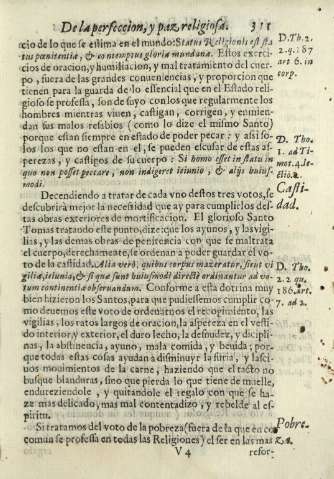 De la perfeccion, y paz religiosa. 311
cio de lo que se estima en el mundo: Status Religionis est sta
tus pœnitentiæ, & contemptus gloriæ mundanæ. Estos exerci
cios de oracion, y humiliacion, y mal tratamiento del cuer-
po, fuera de las grandes conueniencias, y proporcion que
tienen para la guarda de lo essencial que en el Estado reli-
gioso se professa, son de suyo con los que regularmente los
hombres mientras viuen, castigan, corrigen, y enmien-
dan sus malos resabios (como lo dize el mismo Santo)
porque estan siempre en estado de poder pecar: y assi so-
los los que no estan en el, se pueden escusar de estas as-
perezas, y castigos de su cuerpo: Si homo esset in statu in
quo non posset peccare, non indigeret ieiunio, & alijs huius-
modi.
Decendiendo a tratar de cada vno destos tres votos, se
descubrirà mejor la necessidad que ay para cumplir los des-
tas obras exteriores de mortificacion. El glorioso Santo
Tomas tratando este punto, dize: que los ayunos, y las vigi-
lias, y las demas obras de penitencia con que se maltrata
el cuerpo, derechamente, se ordenan a poder guardar el vo-
to de la castidad. Alia verò, quibus corpus maceratur, sicut vi
giliæ, ieiunia, & si quæ sunt huiusmodi directè ordinantur ad vo-
tum continentiæ obseruandum. Conforme a esta dotrina muy
bien hizieron los Santos, para que pudiessemos cumplir co-
mo deuemos este voto de ordenarnos el recogimiento, las
vigilias, los ratos largos de oracion, la aspereza en el vesti-
do interior, y exterior, el duro lecho, la desnudez, y dicipli-
nas, la abstinencia, ayuno, mala comida, y beuida; por
que todas estas cosas ayudan a disminuyr la furia, y lasci-
uos mouimientos de la carne, haziendo que el tacto no
busque blanduras, sino que pierda lo que tiene de muelle,
endureziendole, y quitandole el regalo con que se ha-
ze mas delicado, mas mal contentadizo, y rebelde al es-
piritu.
Si tratamos del voto de la pobreza (fuera de la que en co
comun se professa en todas las Religiones) el ser en las mas
V 4 refor-
D. Th. 2.
2. q. 187
art 6. in
corp.
D. Tho.
1. ad Ti-
mot. 4. le-
ctio 2.
Casti-
dad.
D. Tho.
2. 2 qu.
186. art.
7. ad 2.
Pobre-
za.